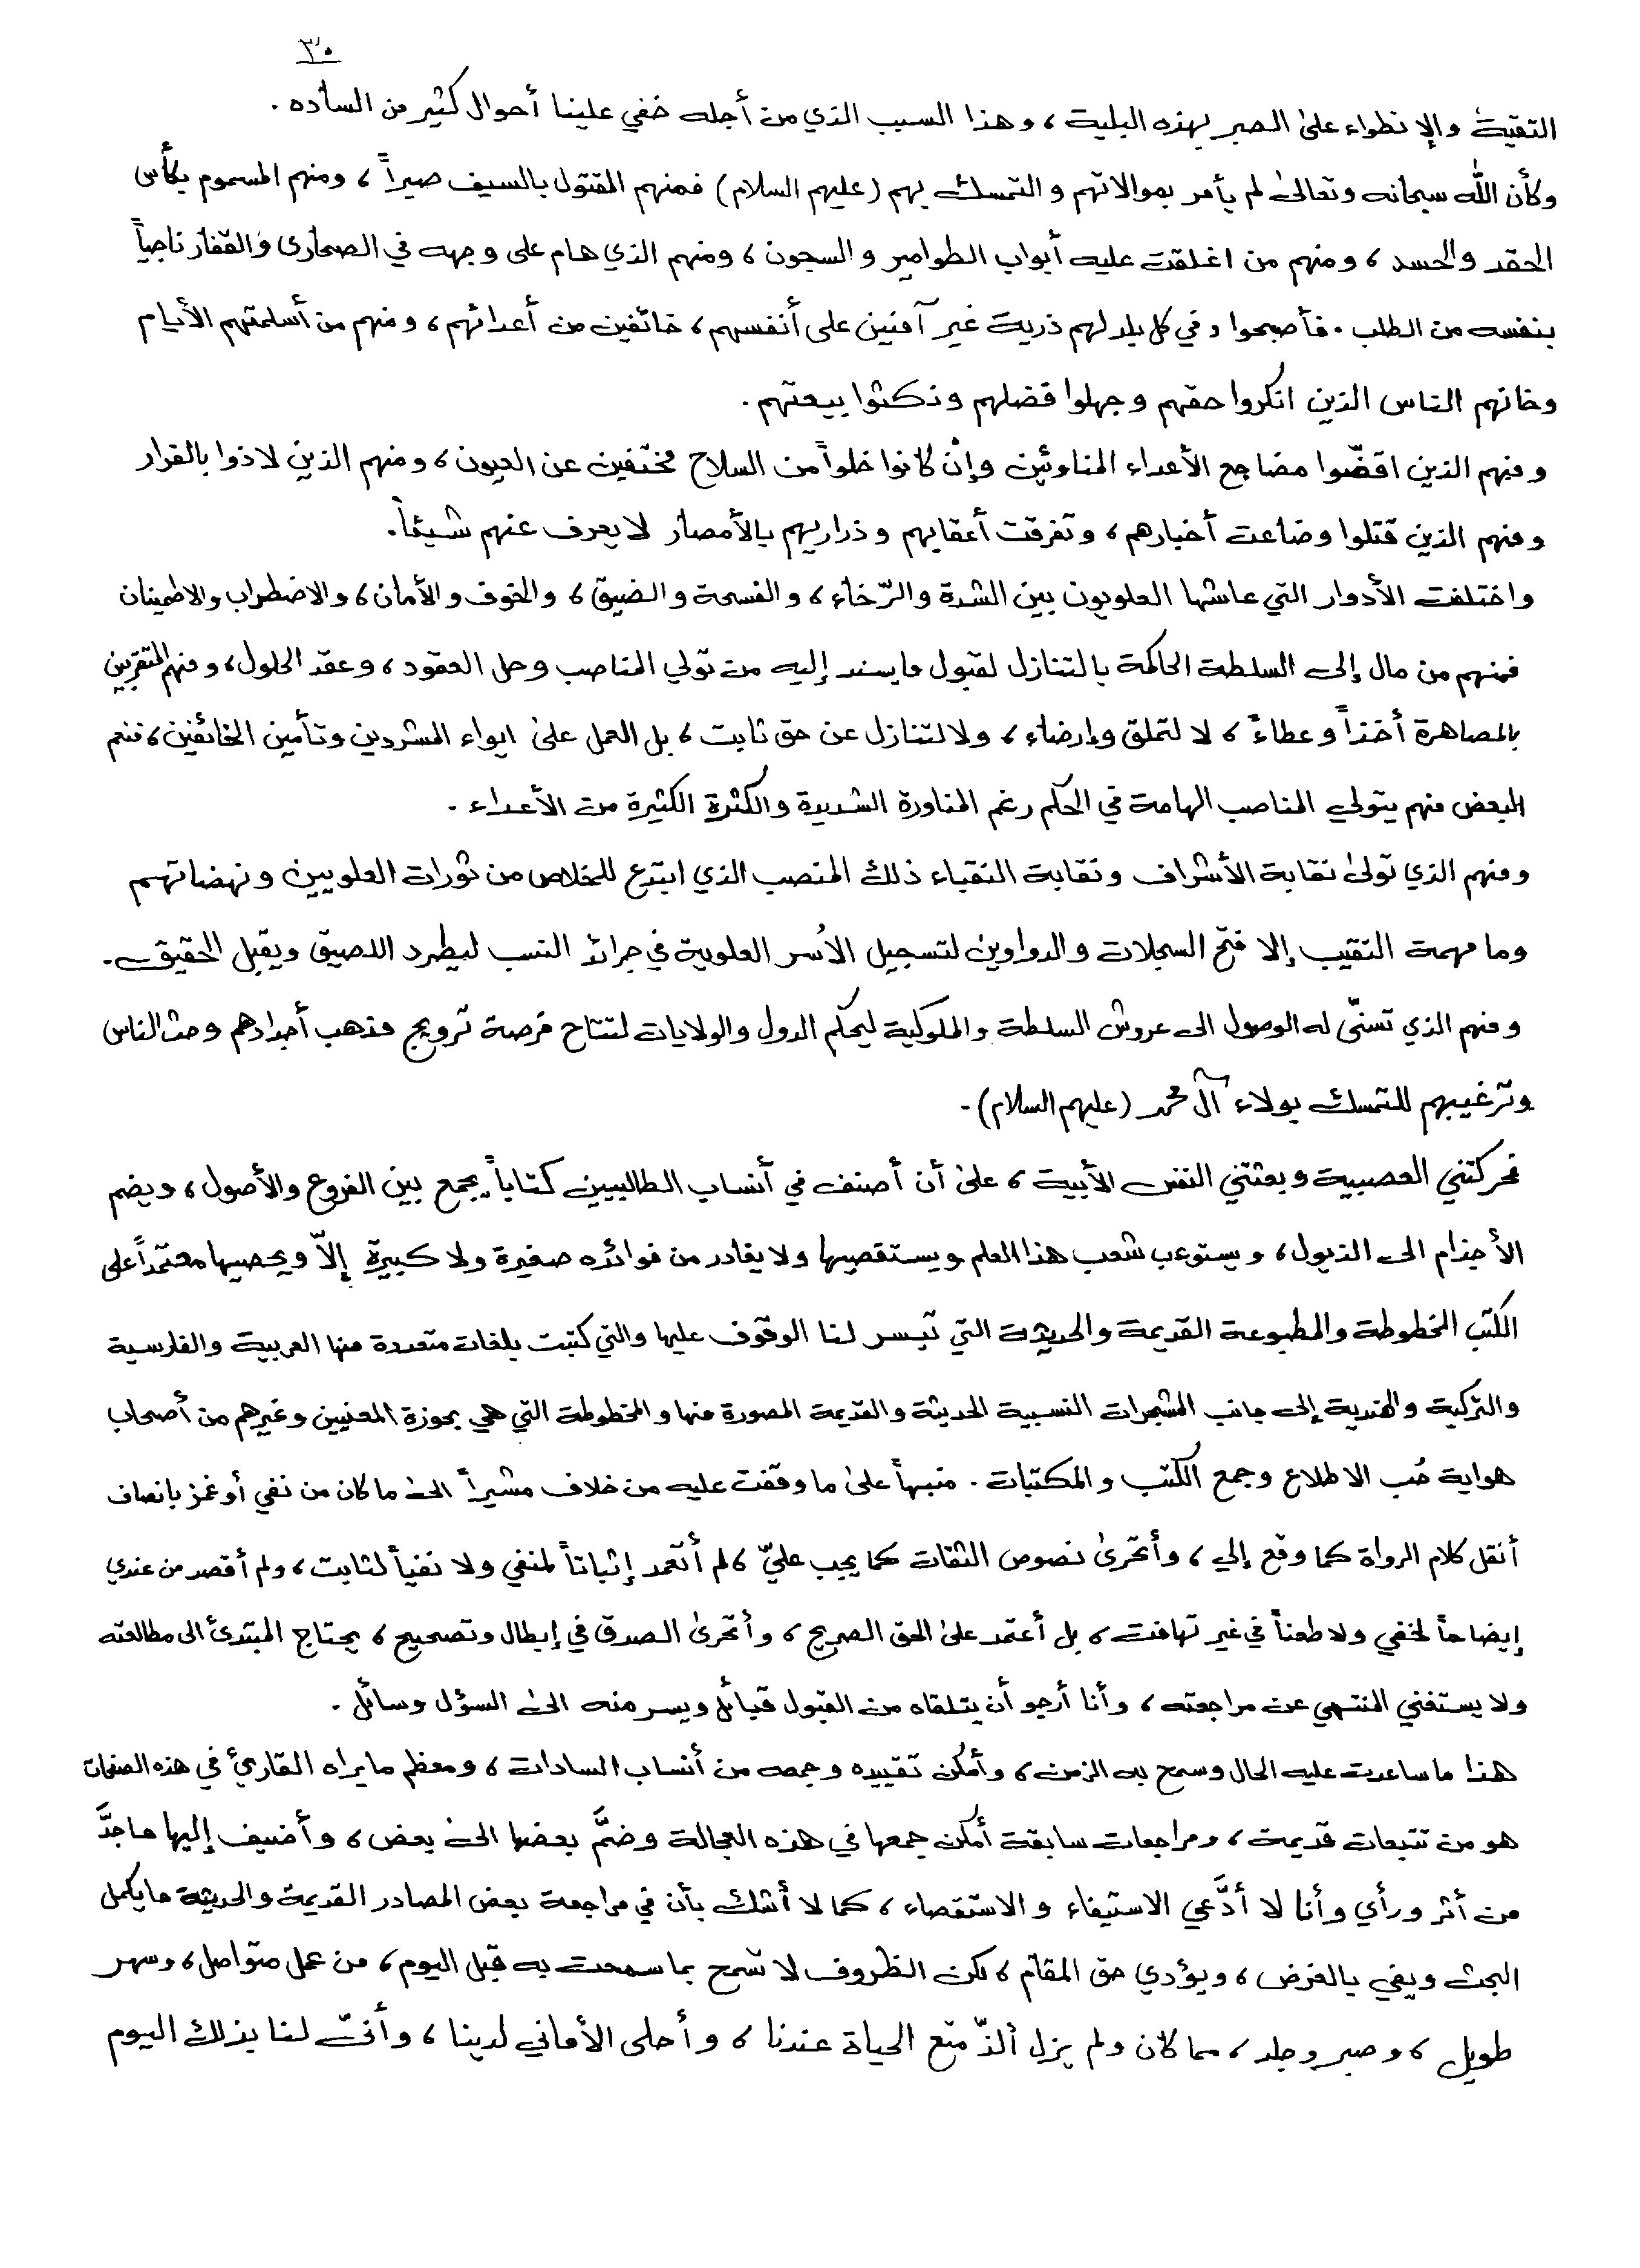 ٣٠
التقية والإنطواء على الصبر بهذه البلية ، وهذا السبب الذي من أجله خفي علينا أحوال كثير من السادة .
وكأن الله سبحانه وتعالى لم يأمر بموالاتهم والتمسك بهم (عليهم السلام) فمنهم المقتول بالسيف صبراً ، ومنهم المسموم بكأس
الحقد والحسد ، ومنهم من اغلقت عليه أبواب الطوامير والسجون ، ومنهم الذي هام على وجهه في الصحارى والقفار ناجياً
بنفسه من الطلب . فأصبحوا وفي كل بلد لهم ذرية غير آمنين على أنفسهم ، خائفين من أعدائهم ، ومنهم من أسلمتهم الأيام
وخانهم الناس الذين انكروا حقهم وجهلوا فضلهم ونكثوا بيعتهم .
ومنهم الذين اقضّوا مضاجع الأعداء المناوئين وإن كانوا خلواً من السلاح مختفين عن العيون ، ومنهم الذين لاذوا بالفرار
ومنهم الذين قتلوا وضاعت أخبارهم ، وتفرقت أعقابهم وذراريهم بالأمصار لا يعرف عنهم شيئاً .
واختلفت الأدوار التي عاشها العلويون بين الشدة والرّخاء ، والفسحة والضيق ، والخوف والأمان ، والاضطراب والاطمينان
فمنهم من مال إلى السلطة الحاكمة بالتنازل لقبول ما يسند إليه من تولي المناصب وحل العقود ، وعقد الحلول ، ومنهم المتقربين
بالمصاهرة أخذاً وعطاءً ، لا لتملق وإرضاء ، ولا لتنازل عن حق ثابت ، بل العمل على ايواء المشردين وتأمين الخائفين ، فنعم
البعض منهم يتولى المناصب الهامة في الحكم رغم المناورة الشديدة والكثرة الكثيرة من الأعداء .
ومنهم الذي تولى نقابة الأشراف ونقابة النقباء ذلك المنصب الذي ابتدع للخلاص من ثورات العلويين ونهضاتهم
وما مهمة النقيب إلا فتح السجلات والدواوين لتسجيل الأسر العلوية في جرائد النسب ليطرد اللصيق ويقبل الحقيق .
ومنهم الذي تسنّى له الوصول الى عروش السلطة والملوكية ليحكم الدول والولايات لتتاح فرصة ترويج مذهب أجدادهم وحث الناس
وترغيبهم للتمسك بولاء آل محمد (عليهم السلام) .
فحركتني العصبية وبعثتني النفس الأبية ، على أن أصنف في أنساب الطالبيين كتاباً يجمع بين الفروع والأصول ، ويضم
الأجذام الى الذيول ، ويستوعب شعب هذا العلم ويستقصيها ولا يغادر من فوائده صغيرة ولا كبيرة إلاّ ويحصيها معتمداً على
الكتب المخطوطة والمطبوعة القديمة والحديثة التي تيسر لنا الوقوف عليها والتي كتبت بلغات متعددة منها العربية والفارسية
والتركية والهندية إلى جانب المشجرات النسبية الحديثة والقديمة المصورة منها والمخطوطة التي هي بحوزة المعنيين وغيرهم من أصحاب
هواية حُب الاطلاع وجمع الكتب والمكتبات . منبهاً على ما وقفت عليه من خلاف مشيراً الى ما كان من نفي أو غمز بانصاف
أنقل كلام الرواة كما وقع إلي ، وأتحرى نصوص الثقات كما يجب عليّ ، لم أتعمد إثباتاً لمنفي ولا نفياً لثابت ، ولم أقصد من عندي
إيضاحاً لخفي ولا طعناً في غير تهافت ، بل أعتمد على الحق الصريح ، وأتحرى الصدق في إبطال وتصحيح ، يحتاج المبتدئ الى مطالعته
ولا يستغني المنتهي عن مراجعته ، وأنا أرجو أن يتلقاه من القبول قبائل ويسر منه الى السؤل وسائل .
هذا ما ساعدت عليه الحال وسمح به الزمن ، وأمكن تقييده وجمعه من أنساب السادات ، ومعظم ما يراه القارئ في هذه الصفحات
هو من تتبعات قديمة ، ومراجعات سابقة أمكن جمعها في هذه العجالة وضمَّ بعضها الى بعض ، وأضيف إليها ما جدَّ
من أثر ورأي وأنا لا أدَّعي الاستيفاء والاستقصاء ، كما لا أشك بأن في مراجعة بعض المصادر القديمة والحديثة ما يكمل
البحث ويفي بالغرض ، ويؤدي حق المقام ، لكن الظروف لا تسمح بما سمحت به قبل اليوم ، من عمل متواصل ، وسهر
طويل ، وصبر وجلد ، مما كان ولم يزل ألذّ متع الحياة عندنا ، وأحلى الأماني لدينا ، وأنّى لنا بذلك اليوم